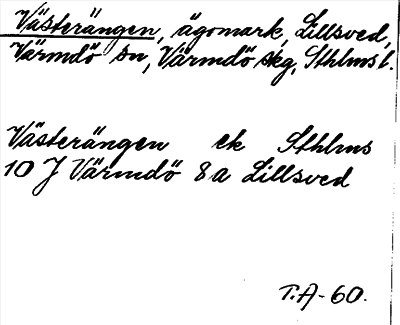 Västerängen, ägomark, Lillsved,
Värmdö sn, Värmdö skg, Sthlms l.
Västerängen ek Sthlms
10 J Värmdö 8a Lillsved
T.A-60.